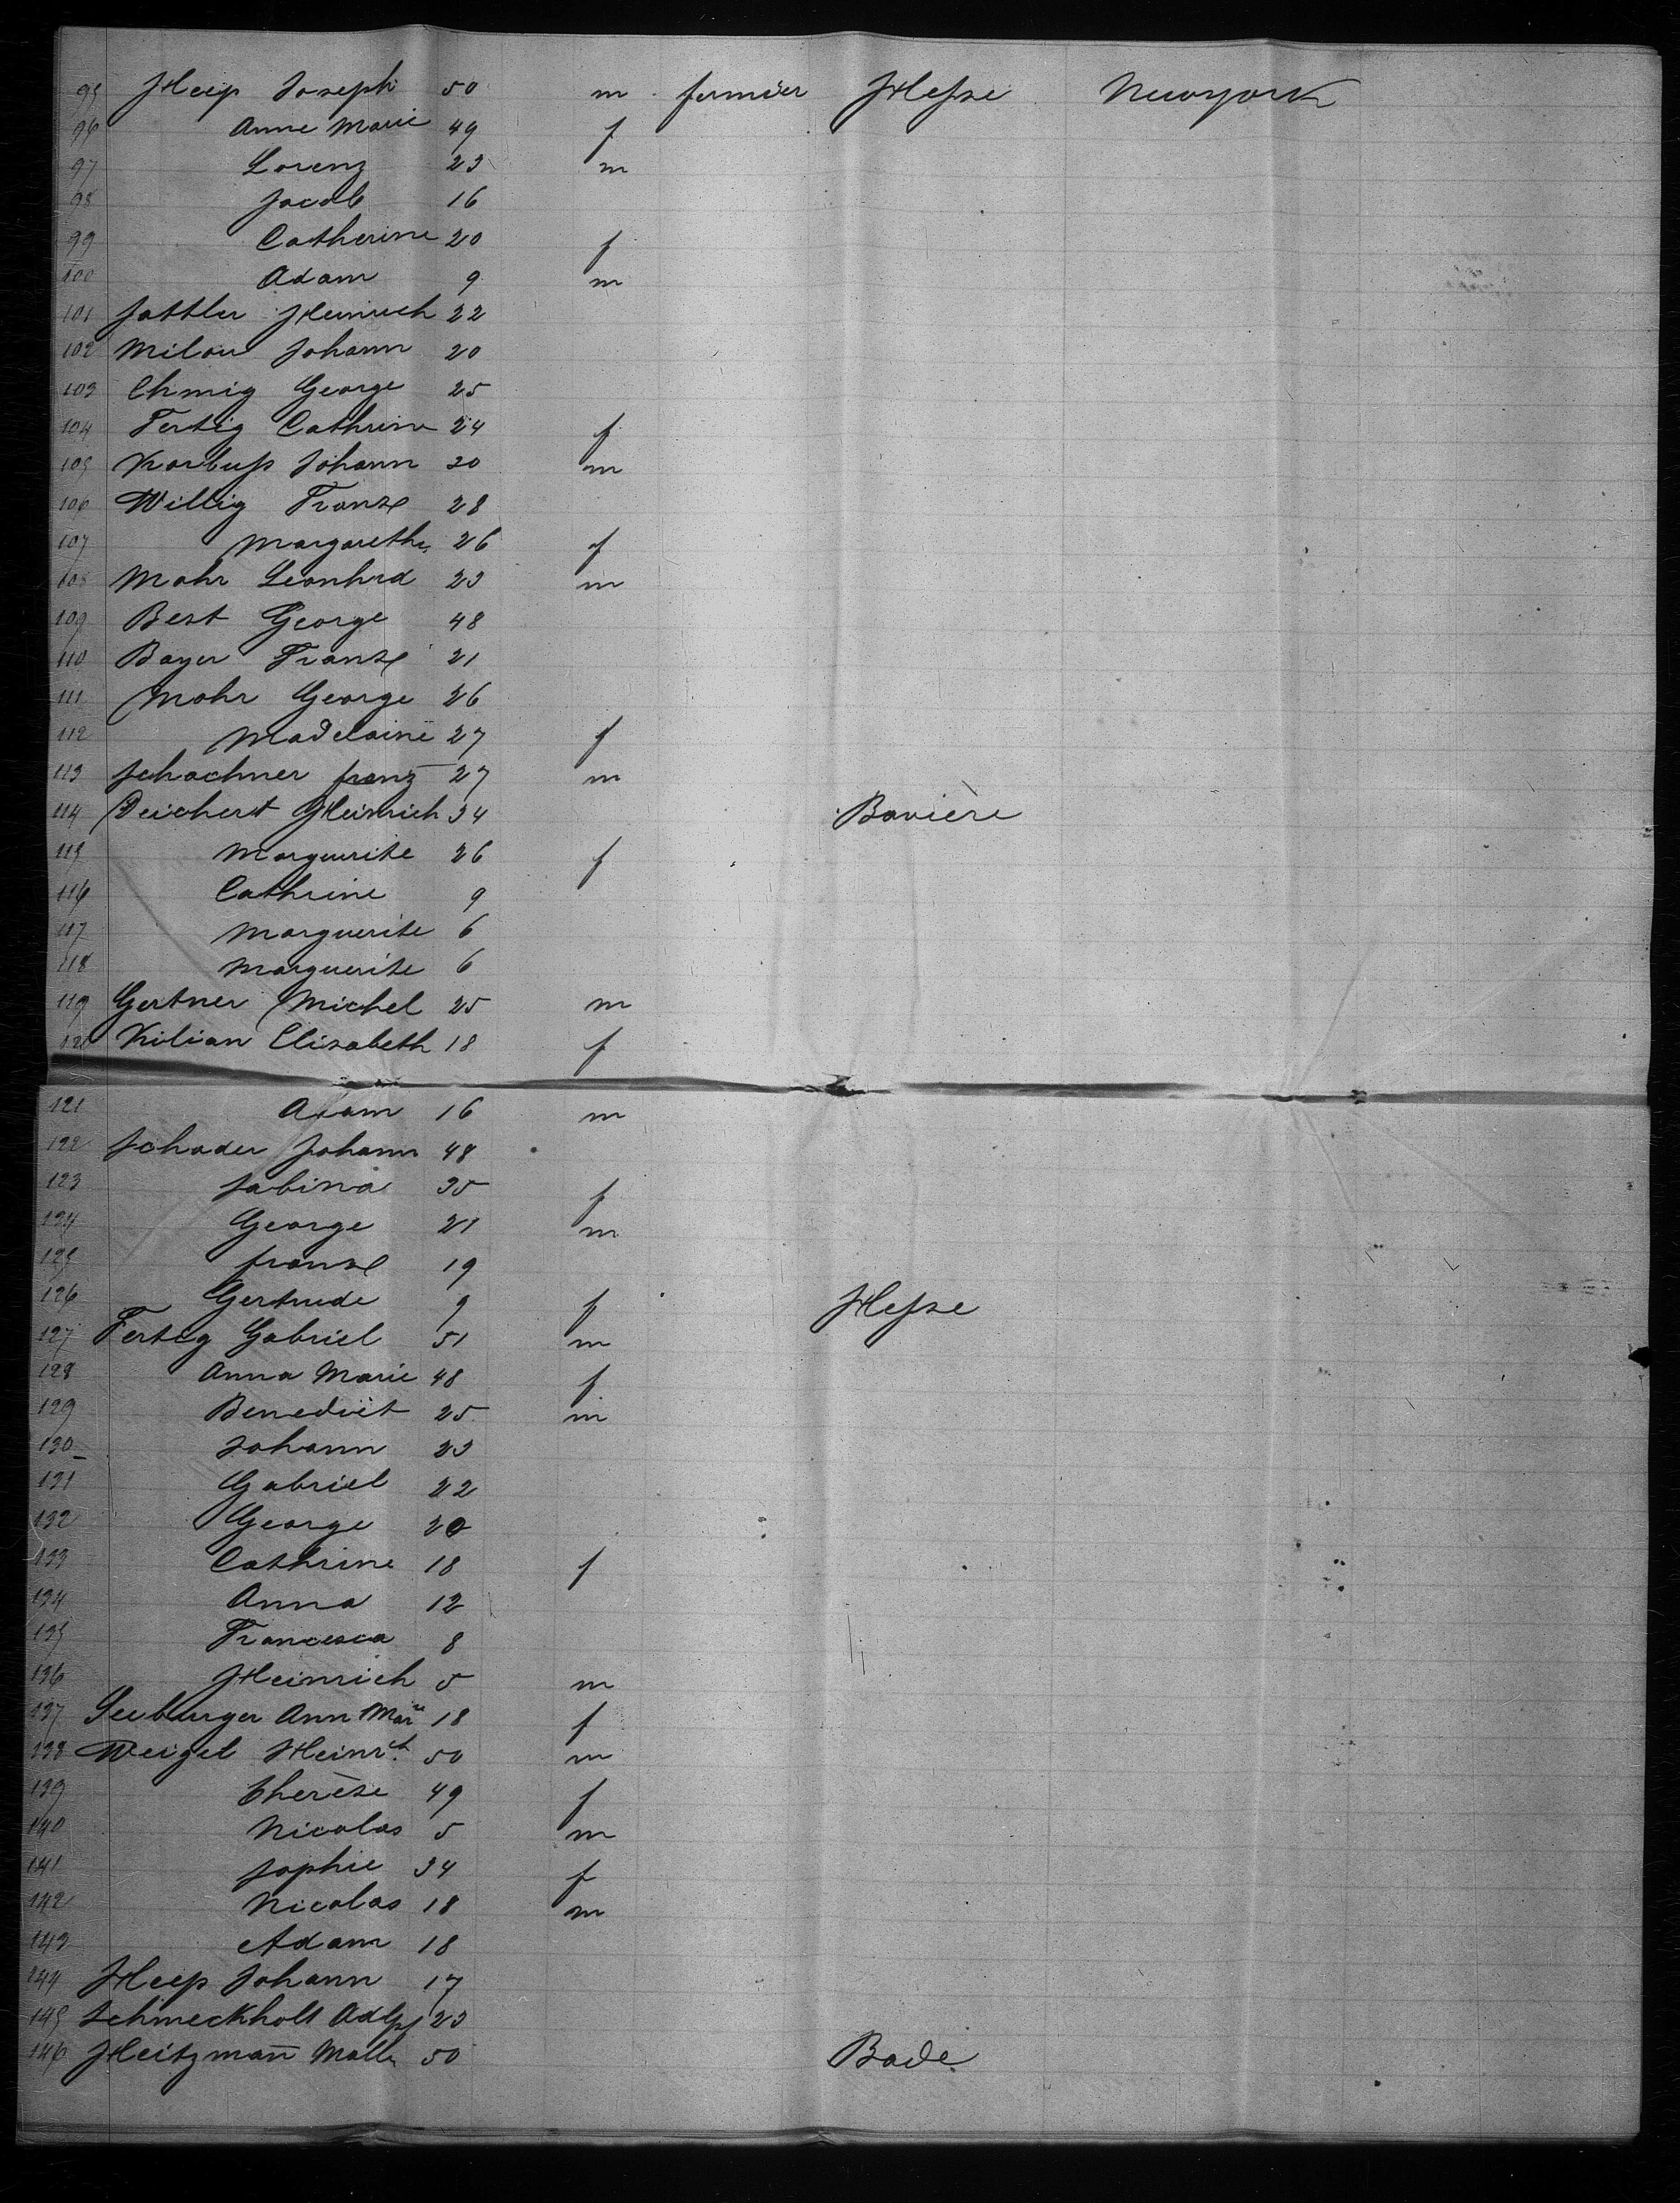 95 Heip Joseph 50 m fermier Hesse Newyork
96 Anne Marie 49 f
97 Lorenz 23 m
98 Jacob 16
99 Catherine 20 f
100 Adam 9 m
101 Sattler Heinrich 22
102 Milou Johann 20
103 Chmig George 25
104 Fertig Cathrine 24 f
105 Karbuß Johann 20 m
106 Willig Franz 28
107 Margarethe 26 f
108 Mohr Leonhrd 23 m
109 Best George 48
110 Bayer Franz 21
111 Mohr George 26
112 Madelaine 27 f
113 Schachner franz 27 m
114 Deichert Heinrich 34 Bavière
115 Marguerite 26 f
116 Cathrine 9
117 Marguerite 6
118 Marguerite 6
119 Gertner Michel 25 m
120 Kilian Elisabeth 18 f
121 Adam 16 m
122 Schader Johann 48
123 Sabina 35 f
124 George 21 m
125 franz 19
126 Gertrude 9 f Hesse
127 Fertig Gabriel 51 m
128 Anna Marie 48 f
129 Benedict 25 m
130 Johann 23
131 Gabriel 22
132 George 20
133 Cathrine 18 f
134 Anna 12
135 Francesca 8
136 Heinrich 5 m
137 Seeburger Ann Marie 18 f
138 Weigel Heinrch 50 m
139 Therèse 49 f
140 Nicolas 5 m
141 Sophie 34 f
142 Nicolas 18 m
143 Adam 18
144 Heep Johann 17
145 Schmeckholt Adlf 23
146 Heitzmañ 50 Bade